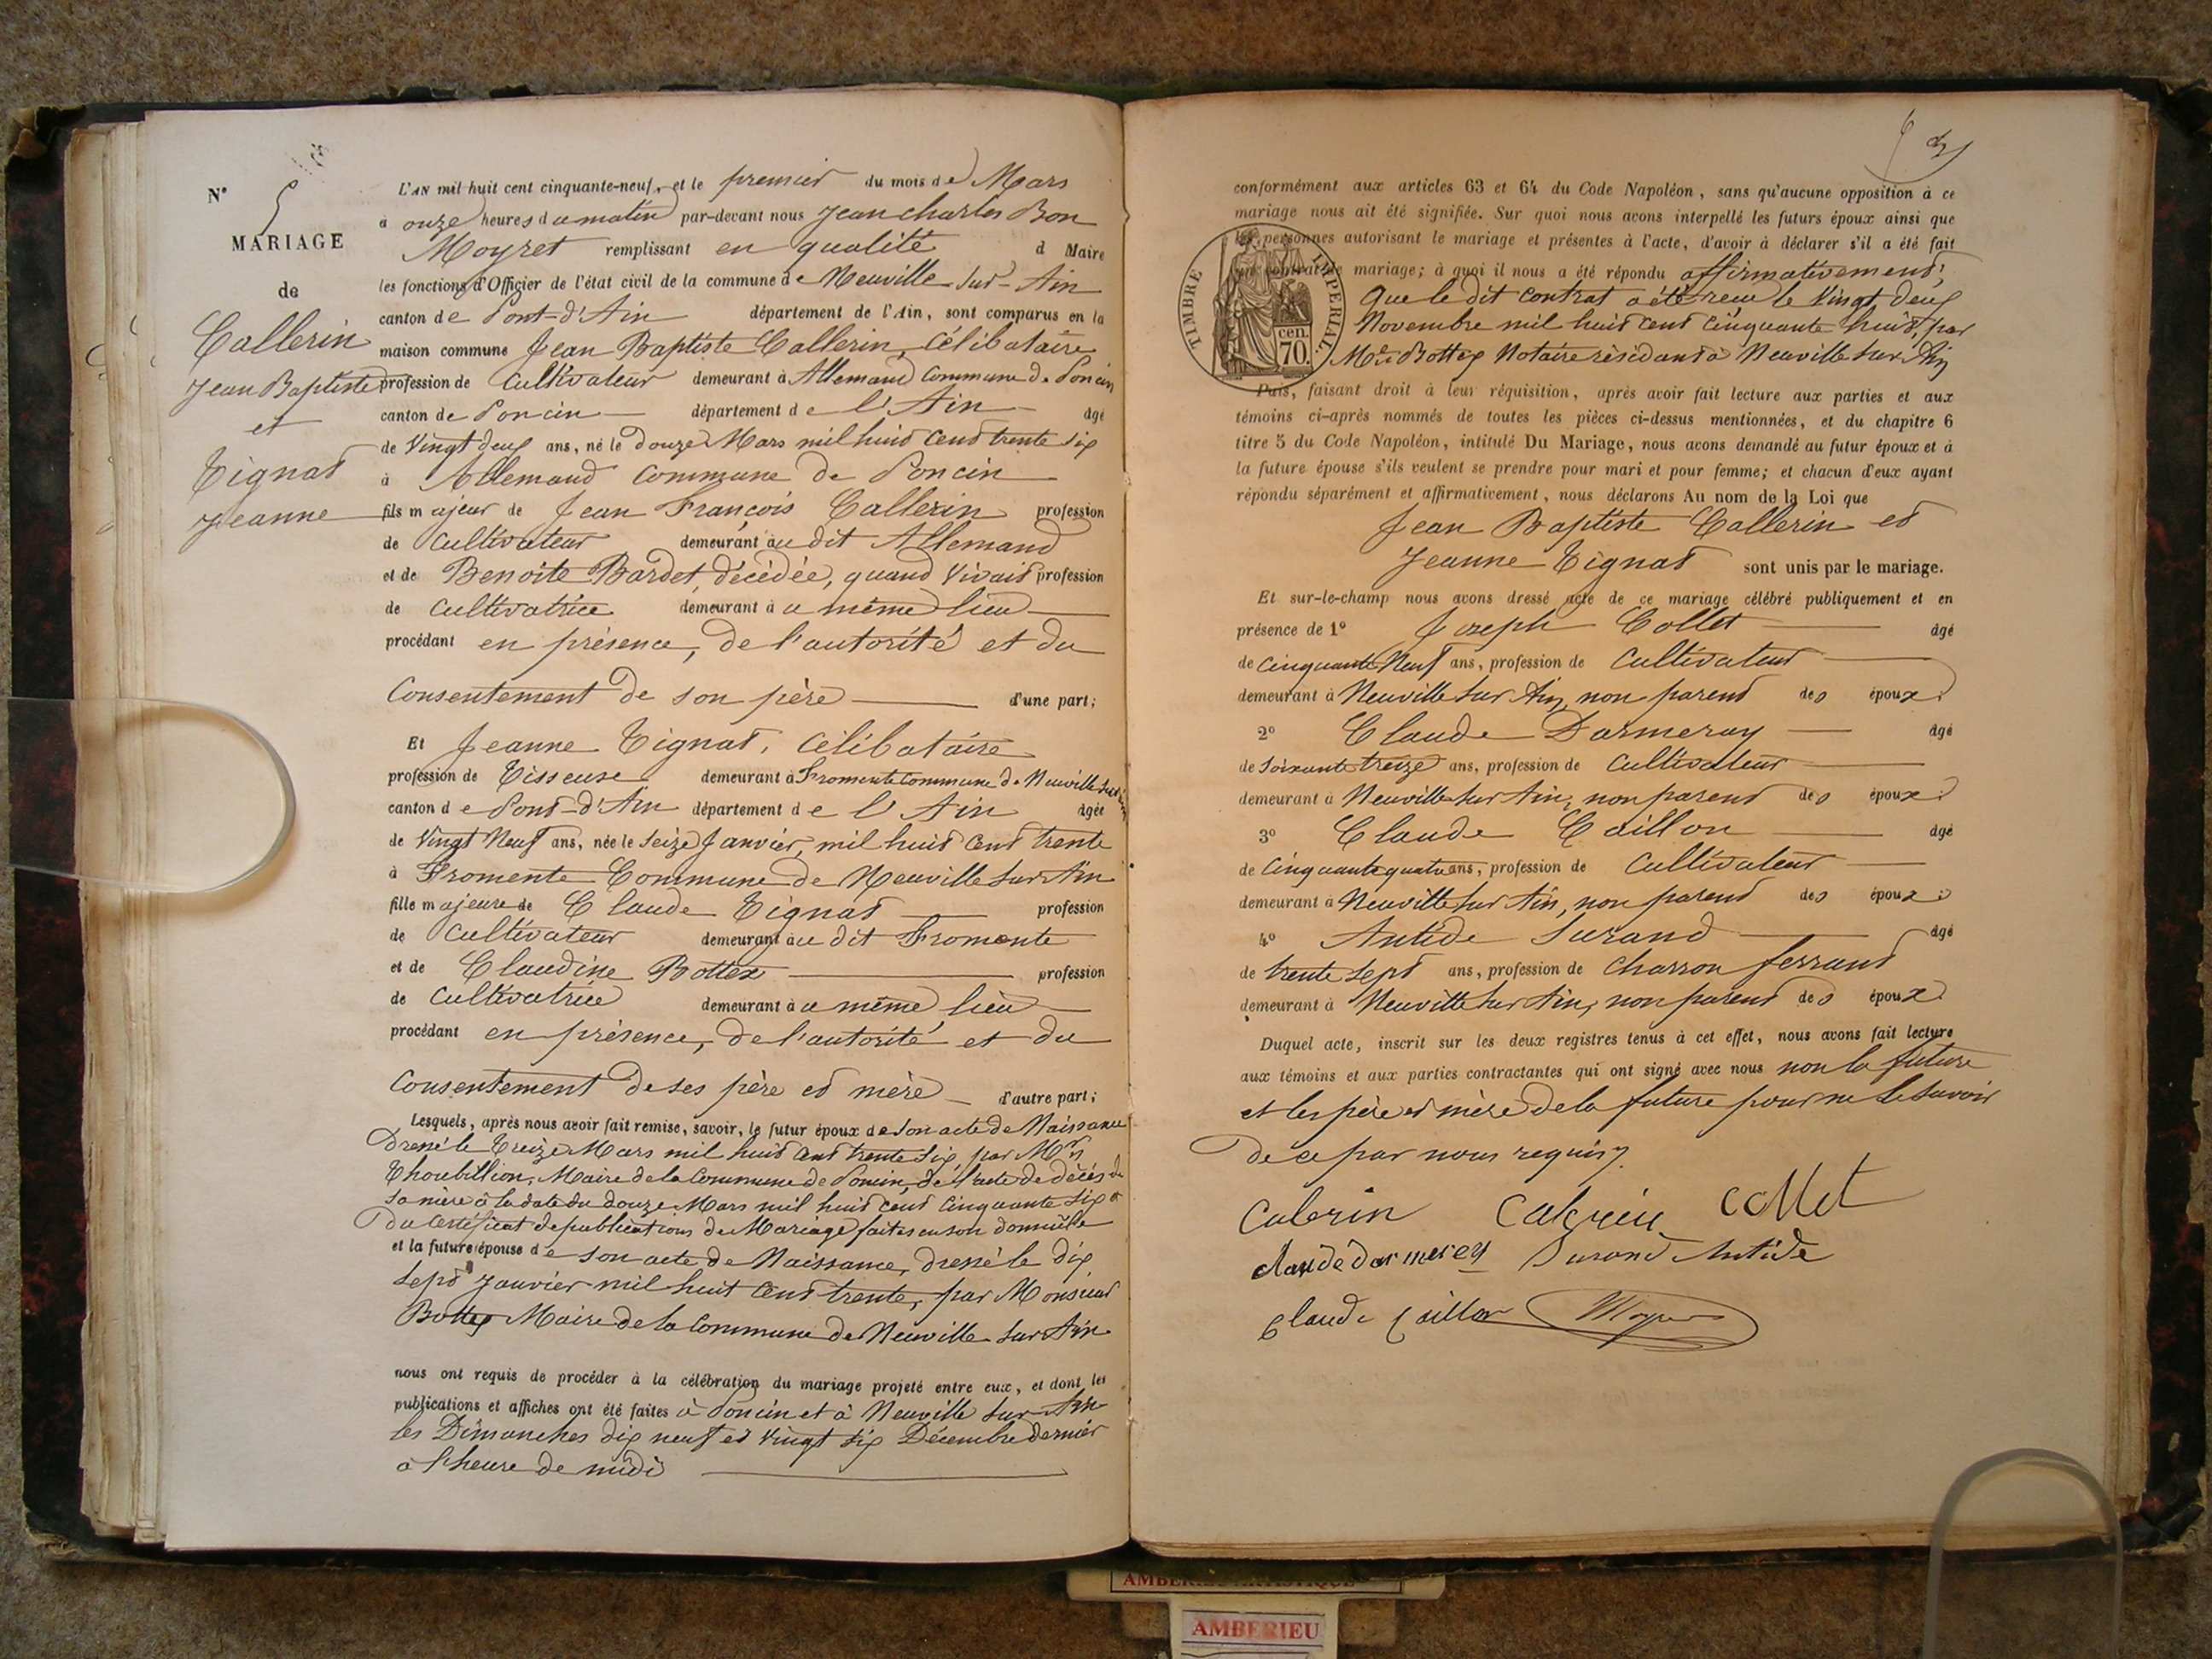 N° 5
MARIAGE
de
Callerin
Jean Baptiste
et
Tignat
Jeanne
L'AN mil huit cent cinquante-neuf, et le premier du mois de Mars
à onze heures du matin par-devant nous Jean Charles Bon
Moyret remplissant en qualité d Maire
les fonctions d'Officier de l'état civil de la commune de Neuville-sur-Ain
canton de Pont-d'Ain département de l'Ain, sont comparus en la
maison commune Jean Baptiste Callerin, Célibataire
profession de Cultivateur demeurant à Allemand Commune de Poncin
canton de Poncin département de l'Ain âgé
de Vingt deux ans, né le Douze Mars mil huit Cent trente six
à Allemand Commune de Poncin
fils majeur de Jean François Callerin profession
de Cultivateur demeurant au dit Allemand
et de Benoite Bardet décédée, quand Vivait profession
de Cultivatrice demeurant à u même lieu
procédant en présence, de l'autorité et du
Consentement de son père d'une part;
Et Jeanne Tignat, Célibataire
profession de Tisseuse demeurant à Fromente Commune de Neuville Sur Ain
canton de Pont-d'Ain département de l'Ain âgée
de Vingt Neuf ans, née le Seize Janvier, mil huit Cent trente
à Fromente Commune de Neuville Sur Ain
fille majeure de Claude Tignat profession
de Cultivateur demeurant au dit Fromente
et de Claudine Bottex profession
de Cultivatrice demeurant à u même lieu
procédant en présence, de l'autorité et du
Consentement de ses père et mère d'autre part;
Lesquels, après nous avoir fait remise, savoir, le futur époux de son acte de Naissance
Dressé le Treize Mars mil huit Cent trente six, par Mr
Thoubillion, Maire de la Commune de Poncin, de l'acte de décès de
sa mère à la date du douze Mars mil huit cent Cinquante six et
Du Certificat de publications de Mariage faites en son domicile
et la future épouse de son acte de Naissance, Dressé le dix
Sept Janvier mil huit Cent trente, par Monsieur
Bottex Maire de la Commune de Neuville Sur Ain
nous ont requis de procéder à la célébration du mariage projeté entre eux, et dont les
publications et affiches ont été faites à Poncin et à Neuville Sur Ain
les Dimanches dix neuf et Vingt six Décembre dernier
à l'heure de midi
conformément aux articles 63 et 64 du Code Napoléon, sans qu'aucune opposition à ce
mariage nous ait été signifiée. Sur quoi nous avons interpellé les futurs époux ainsi que
les personnes autorisant le mariage et présentes à l'acte, d'avoir à déclarer s'il a été fait
un contrat de mariage; à quoi il nous a été répondu affirmativement,
TIMBRE IMPERIAL
cen.
70.
Que le dit Contrat a été reçu le Vingt deux
Novembre mil huit cent cinquante huit, par
Me Bottex Notaire résidant à Neuville Sur Ain
Puis, faisant droit à leur réquisition, après avoir fait lecture aux parties et aux
témoins ci-après nommés de toutes les pièces ci-dessus mentionnées, et du chapitre 6
titre 5 du Code Napoléon, intitulé Du Mariage, nous avons demandé au futur époux et à
la future épouse s'ils veulent se prendre pour mari et pour femme; et chacun d'eux ayant
répondu séparément et affirmativement, nous déclarons Au nom de la Loi que
Jean Baptiste Callerin et
Jeanne Tignat sont unis par le mariage.
Et sur-le-champ nous avons dressé acte de ce mariage célébré publiquement et en
présence de 1° Joseph Collet âgé
de Cinquante Neuf ans, profession de Cultivateur
demeurant à Neuville Sur Ain, non parent des époux
2° Claude Darmeray âgé
de Soixante treize ans, profession de Cultivateur
demeurant à Neuville Sur Ain, non parent des époux
3° Claude Caillon âgé
de Cinquante quatre ans, profession de Cultivateur
demeurant à Neuville Sur Ain, non parent des époux
4° Antide Durand âgé
de trente Sept ans, profession de Charron ferrant
demeurant à Neuville Sur Ain, non parent des époux
Duquel acte, inscrit sur les deux registres tenus à cet effet, nous avons fait lecture
aux témoins et aux parties contractantes qui ont signé avec nous non la future
et les père et mère de la future pour ne le Savoir
De ce par nous requis
Calerin Calerin Collet
claude darmerey Durand Antide
Claude Caillon Moyret
AMBERIEU